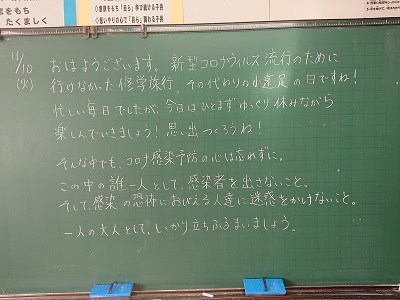 をもち
たくましく
◇意欲をもち「自ら」学び続ける子供
◇思いやりの心で「自ら」関わる子供
11/10
(火)
おはようございます。新型コロナウィルス流行のために
行けなかった修学旅行、その代わりの小遠足の日ですね!
忙しい毎日でしたが、今日はひとまずゆっくり休みながら
楽しんでいきましょう!思い出つくろうね!
そんな中でも、コロナ感染予防の心は忘れずに。
この中の誰一人として、感染者を出さないこと。
そして、感染の恐怖におびえる人達に迷惑をかけないこと。
一人の大人として、しっかり立ちふるまいましょう。